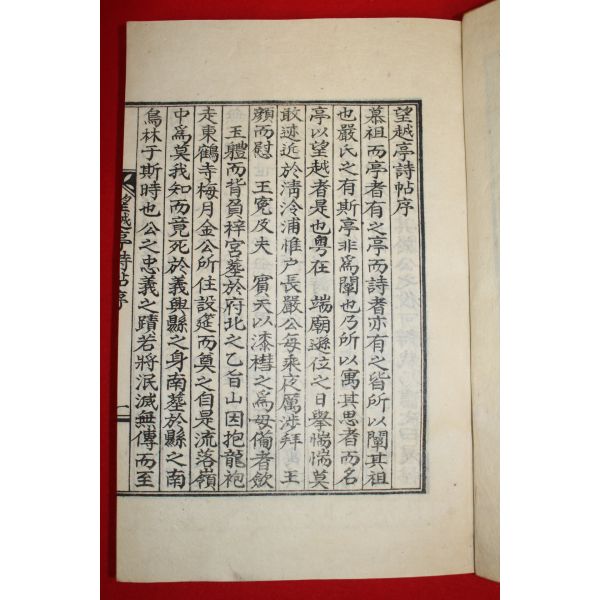 望越亭詩帖序
慕祖而亭者有之亭而詩者亦有之皆所以闡其祖
也嚴氏之有斯亭非爲闡也乃所以寓其思者而名
亭以望越者是也粤在 端廟遜位之日擧惴惴莫
敢迹近於淸泠浦惟戶長嚴公每乘夜厲涉拜 王
顔而慰 王寃及夫 賓天以漆槥之爲母備者歛
玉軆而背負梓宮墓於府北之乙旨山因抱龍袍
走東鶴寺梅月金公所住設筵而奠之自是流落嶺
中爲莫我知而竟死於義興縣之身南墓於縣之南
烏林于斯時也公之忠義之蹟若將泯滅無傳而至
望越亭詩帖序
一